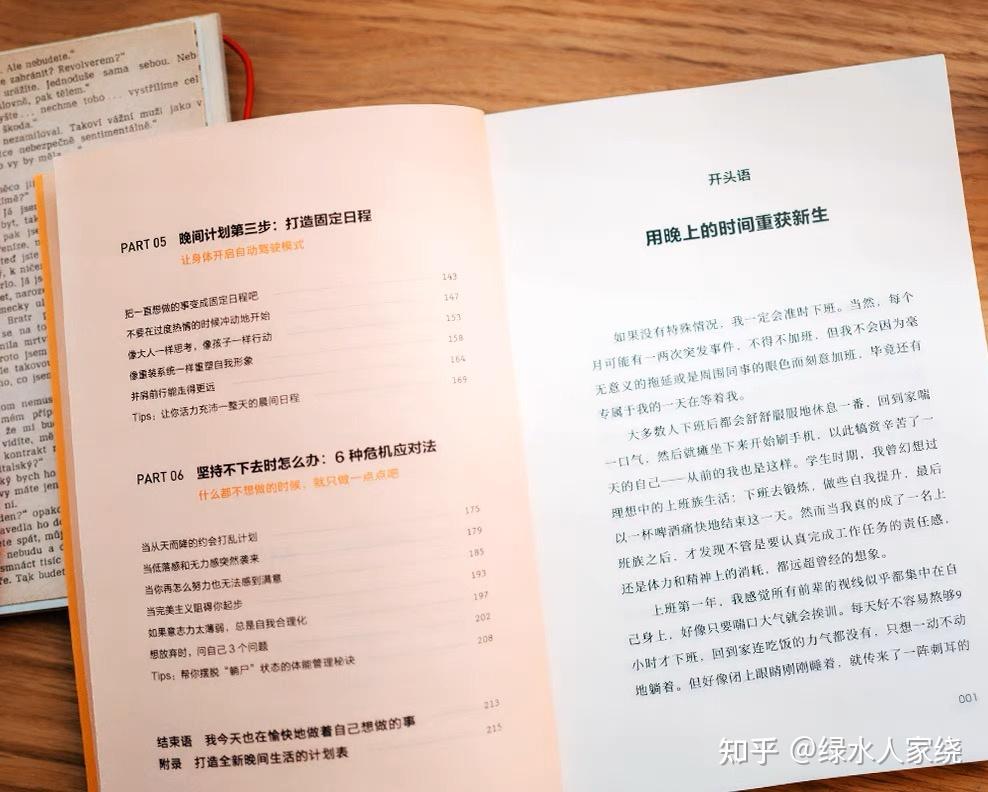 Ale nebudete."
zabránit? Revolverem?"
urážíte. Jednoduše sama sebou. Neb
pak tělem."
nechme toho... vystřílíme cel
škoda."
nezamiloval. Takoví vážní muži jako v
nebezpečně sentimentálně."
o vy by měla
PART 05 晚间计划第三步：打造固定日程
让身体开启自动驾驶模式
把一直想做的事变成固定日程吧 143
不要在过度热情的时候冲动地开始 147
像大人一样思考，像孩子一样行动 153
像重装系统一样重塑自我形象 158
并肩前行能走得更远 164
Tips：让你活力充沛一整天的晨间日程 169
PART 06 坚持不下去时怎么办：6 种危机应对法
什么都不想做的时候，就只做一点点吧
当从天而降的约会打乱计划 175
当低落感和无力感突然袭来 179
当你再怎么努力也无法感到满意 185
当完美主义阻碍你起步 193
如果意志力太薄弱，总是自我合理化 197
想放弃时，问自己 3 个问题 202
Tips：帮你摆脱“躺尸”状态的体能管理秘诀 208
结束语 我今天也在愉快地做着自己想做的事 213
附录 打造全新晚间生活的计划表 215
开头语
用晚上的时间重获新生
如果没有特殊情况，我一定会准时下班。当然，每个
月可能有一两次突发事件，不得不加班，但我不会因为毫
无意义的拖延或是周围同事的眼色而刻意加班，毕竟还有
专属于我的一天在等着我。
大多数人下班后都会舒舒服服地休息一番，回到家喘
一口气，然后就瘫坐下来开始刷手机，以此犒赏辛苦了一
天的自己——从前的我也是这样。学生时期，我曾幻想过
理想中的上班族生活：下班去锻炼，做些自我提升，最后
以一杯啤酒痛快地结束这一天。然而当我真的成了一名上
班族之后，才发现不管是要认真完成工作任务的责任感，
还是体力和精神上的消耗，都远超曾经的想象。
上班第一年，我感觉所有前辈的视线似乎都集中在自
己身上，好像只要喘口大气就会挨训。每天好不容易熬够9
小时才下班，回到家连吃饭的力气都没有，只想一动不动
地躺着。但好像闭上眼睛刚刚睡着，就传来了一阵刺耳的
001
知乎 @绿水人家绕